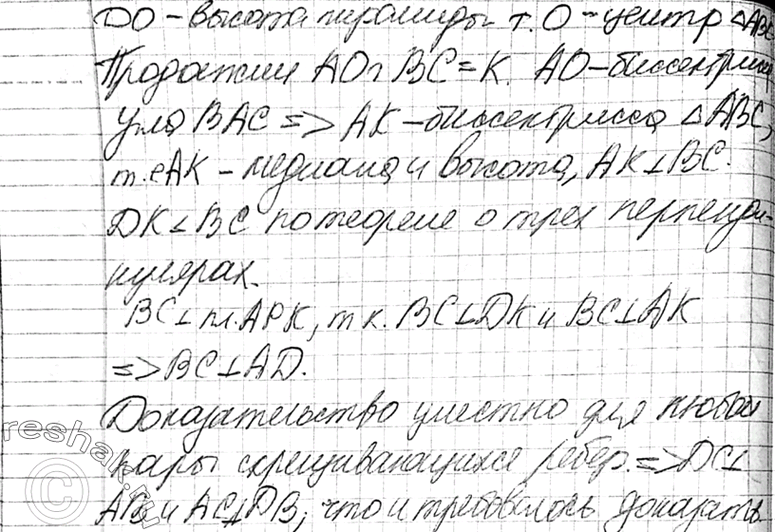 DO – высота пирамиды т. O – центр △ABC
Продолжим AO∩BC=K. AO–биссектриса
угла BAC => AK–биссектриса △ABC,
т.е AK – медиана и высота, AK⊥BC.
DK⊥BC по теореме о трех перпенди-
кулярах.
BC⊥пл. ADK, т.к. BC⊥DK и BC⊥AK
=> BC⊥AD.
Доказательство уместно для любой
пары скрещивающихся ребер. => DC⊥
AB и AC⊥DB, что и требовалось доказать
reshak.ru
©